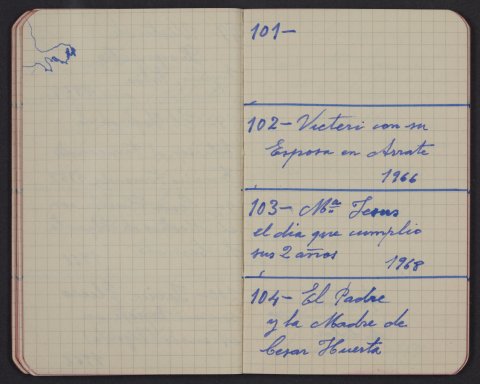 101-
102- Victeri con su
Esposa en Arrate
1966
103- Mª Jesus
el dia que cumplio
sus 2 años
1968
104- El Padre
y la Madre de
Cesar Huerta